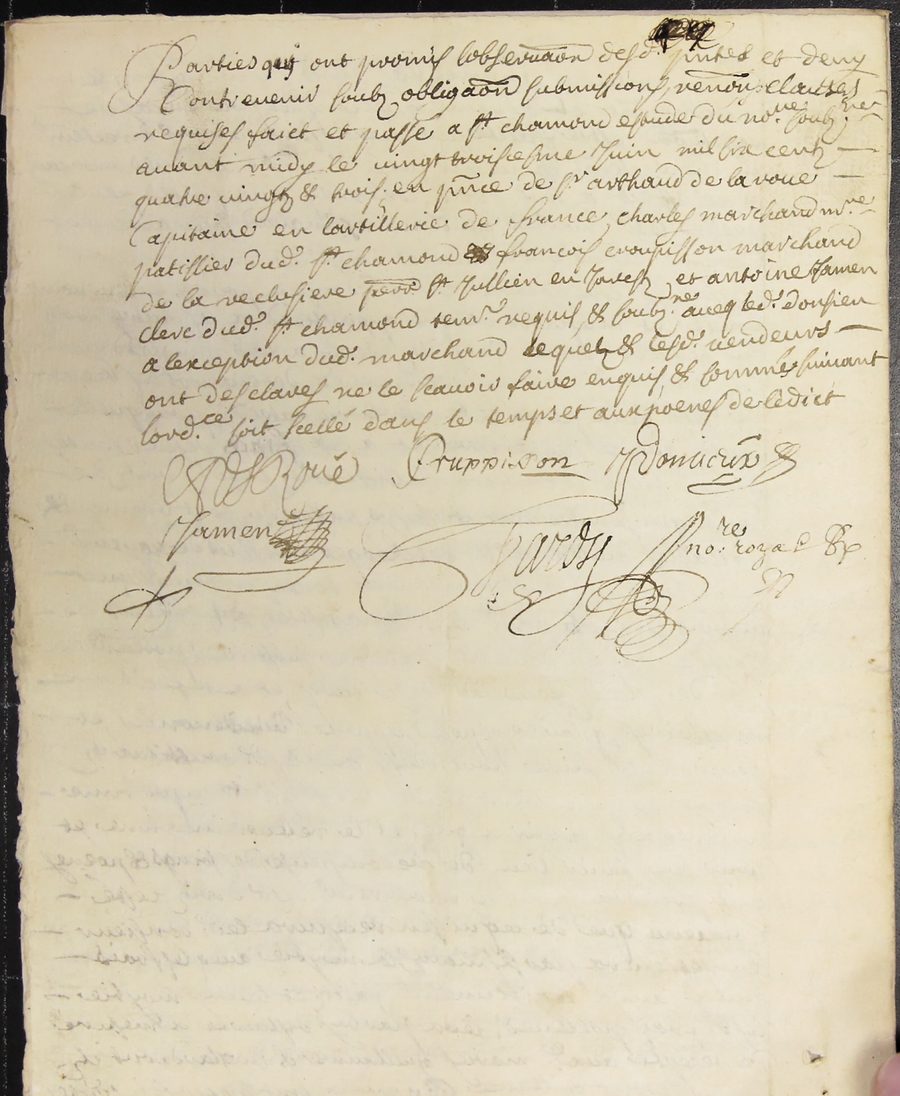 Parties qui ont promis lobservãon desd. pñtes et deny
Contrevenir soubz obligãon submissions, renõns clauses
requises faict et passé a st. chamond estude du no.re soubz.né
avant midy le vingt troisiesme Juin mil six centz
quatre vingtz & trois, en pñce de sr. arthaud de la roue
Capitaine en lartillerie de france, charles marchand m.re
patissier dud. st. chamond francois croupisson marchand
de la reclusiere parr. st. Jullien en Jarestz, et antoine Jamen
clerc dud. st. chamond tem.s requis, & soubz.nes avecq led. donsieu
a lexception dud. marchand lequel & lesd. vendeurs
ont desclarés ne le scavoir faire enquis, & sommés suivant
lord.ce soit scellé dans le temps et aux poenes de lédict
Roüe Cruppisson Donsieux
Jamen Hardy no.re royal